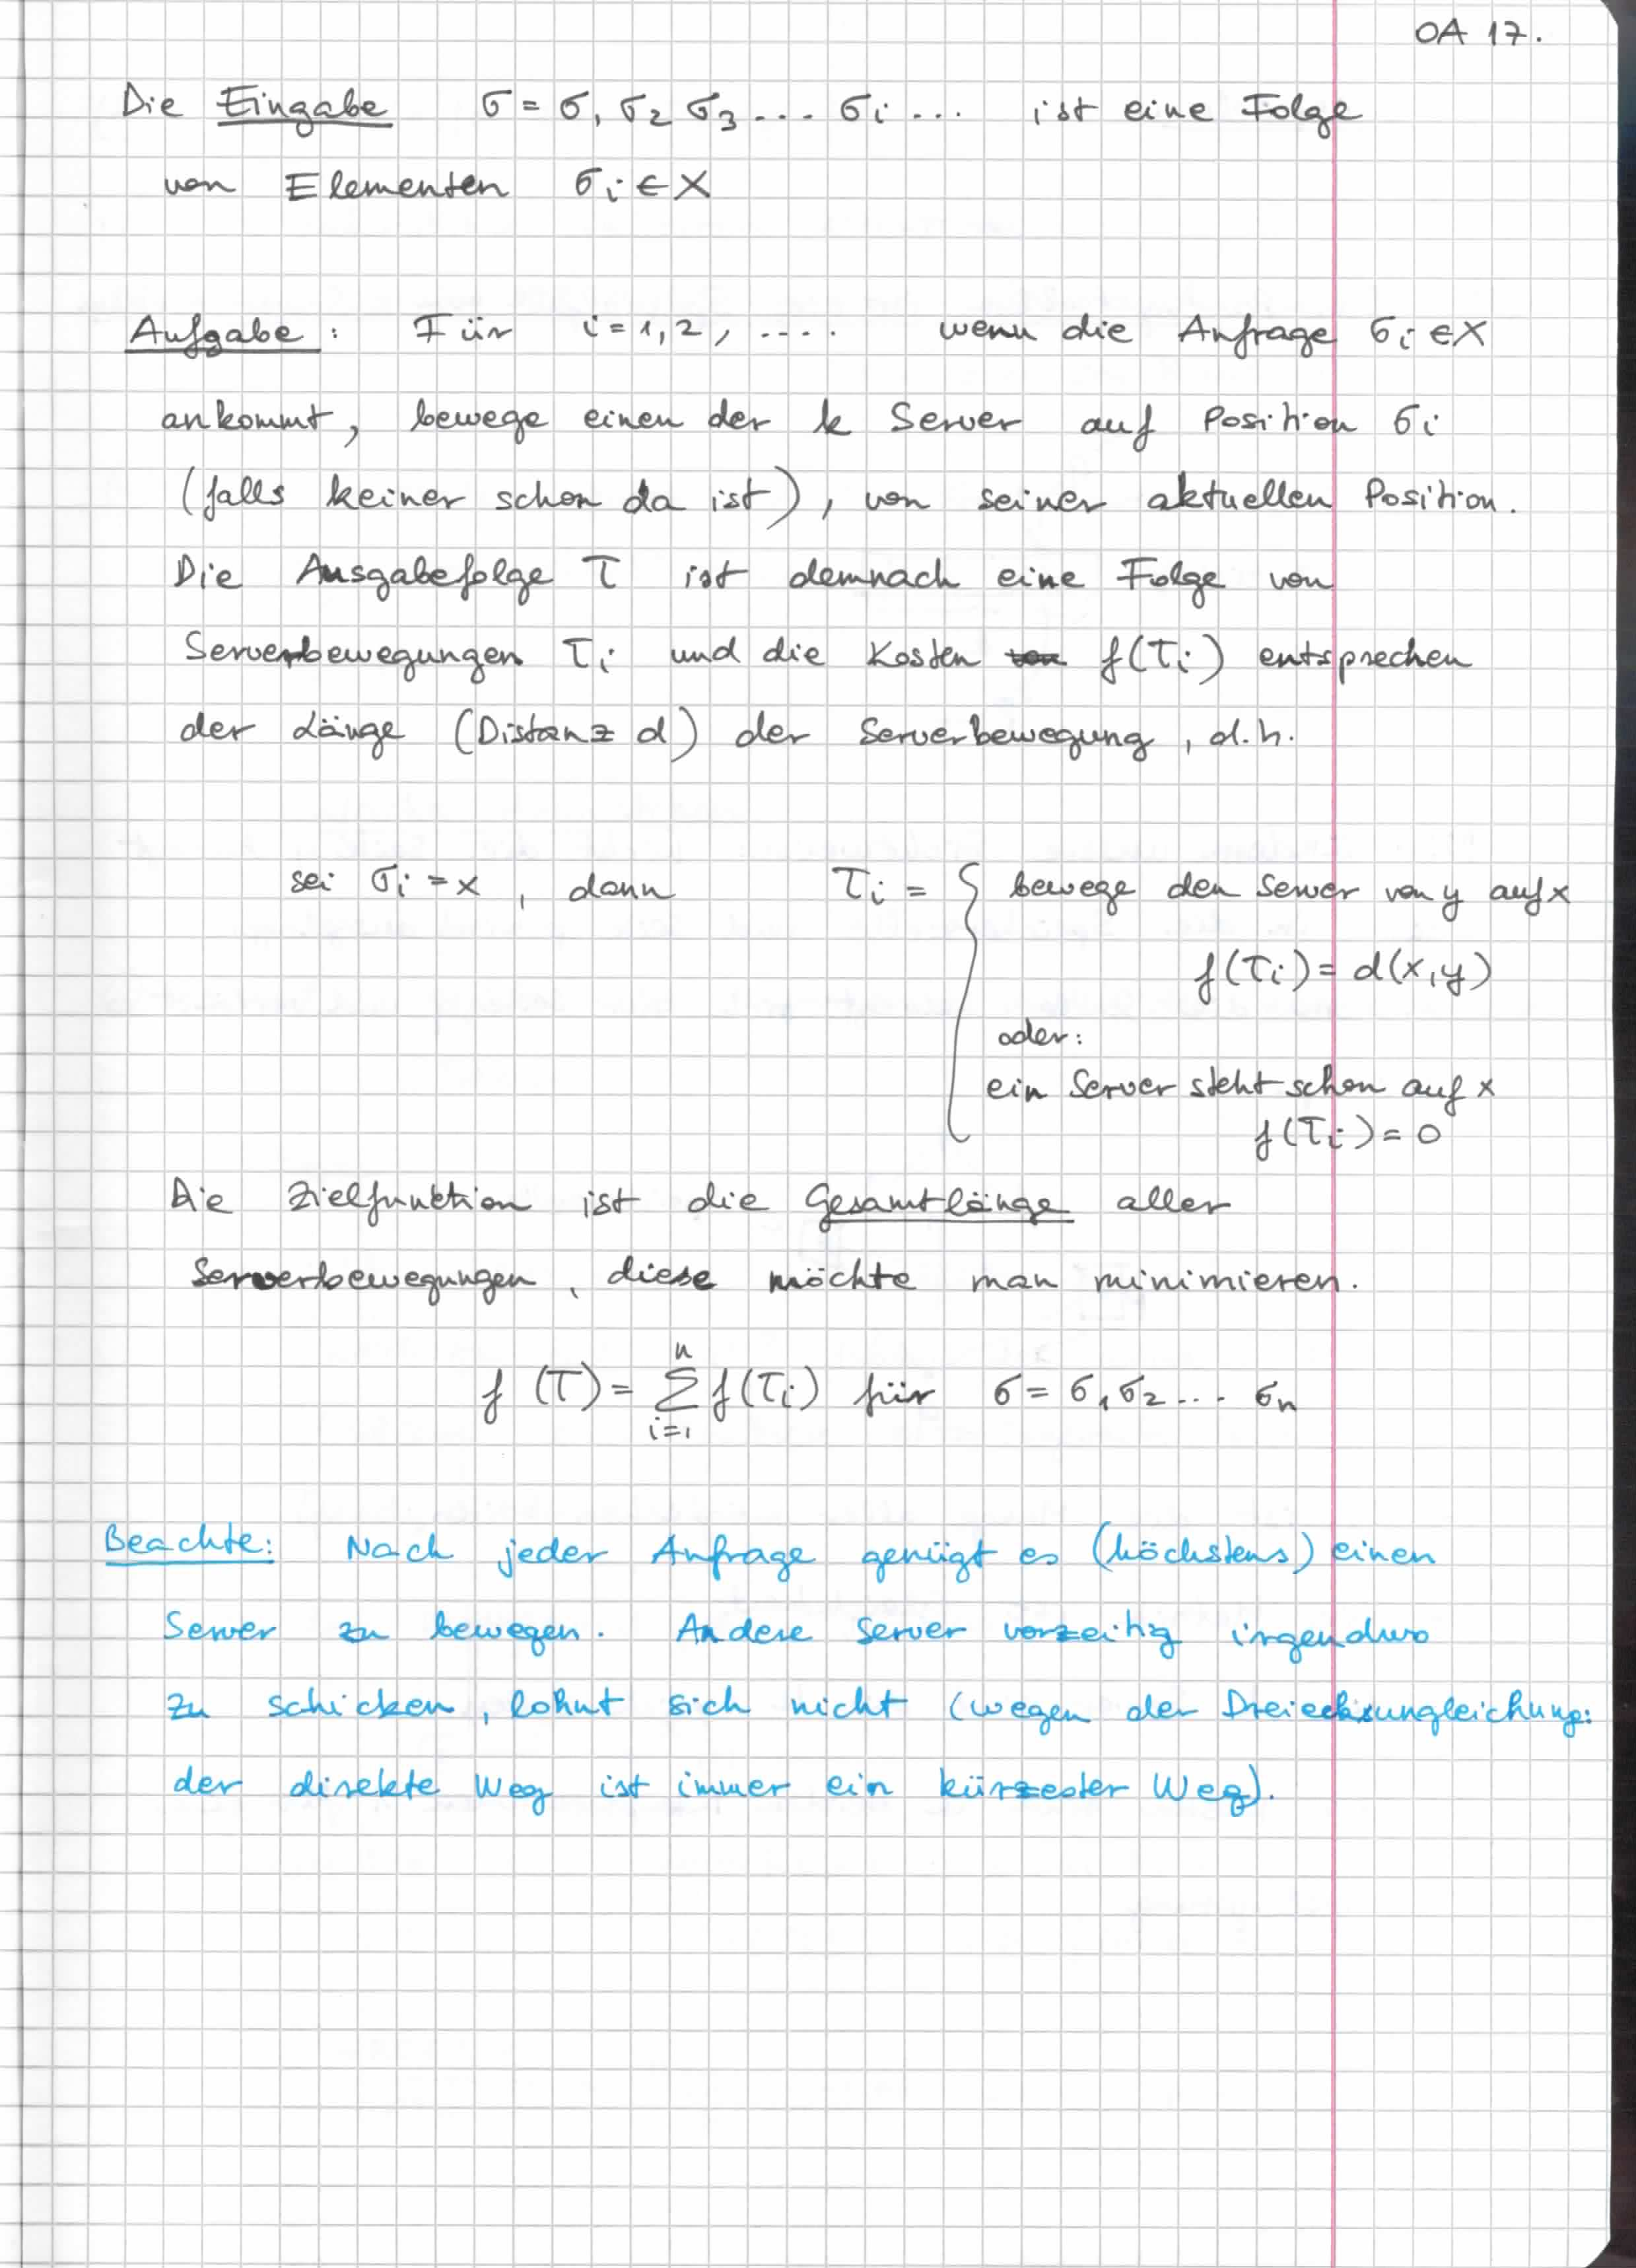 OA 17.
Die Eingabe σ = σ₁ σ₂ σ₃ ... σᵢ ... ist eine Folge
von Elementen σᵢ ∈ X
Aufgabe: Für i = 1, 2, .... wenn die Anfrage σᵢ ∈ X
ankommt, bewege einen der k Server auf Position σᵢ
(falls keiner schon da ist), von seiner aktuellen Position.
Die Ausgabefolge τ ist demnach eine Folge von
Serverbewegungen τᵢ und die Kosten f(τᵢ) entsprechen
der Länge (Distanz d) der Serverbewegung, d.h.
sei σᵢ = x, dann τᵢ = { bewege den Server von y auf x
f(τᵢ) = d(x,y)
oder:
ein Server steht schon auf x
f(τᵢ) = 0
Die Zielfunktion ist die Gesamtlänge aller
Serverbewegungen, diese möchte man minimieren.
f(τ) = Σᵢ₌₁ⁿ f(τᵢ) für σ = σ₁ σ₂ ... σₙ
Beachte: Nach jeder Anfrage genügt es (höchstens) einen
Server zu bewegen. Andere Server vorzeitig irgendwo
zu schicken, lohnt sich nicht (wegen der Dreiecksungleichung:
der direkte Weg ist immer ein kürzester Weg).